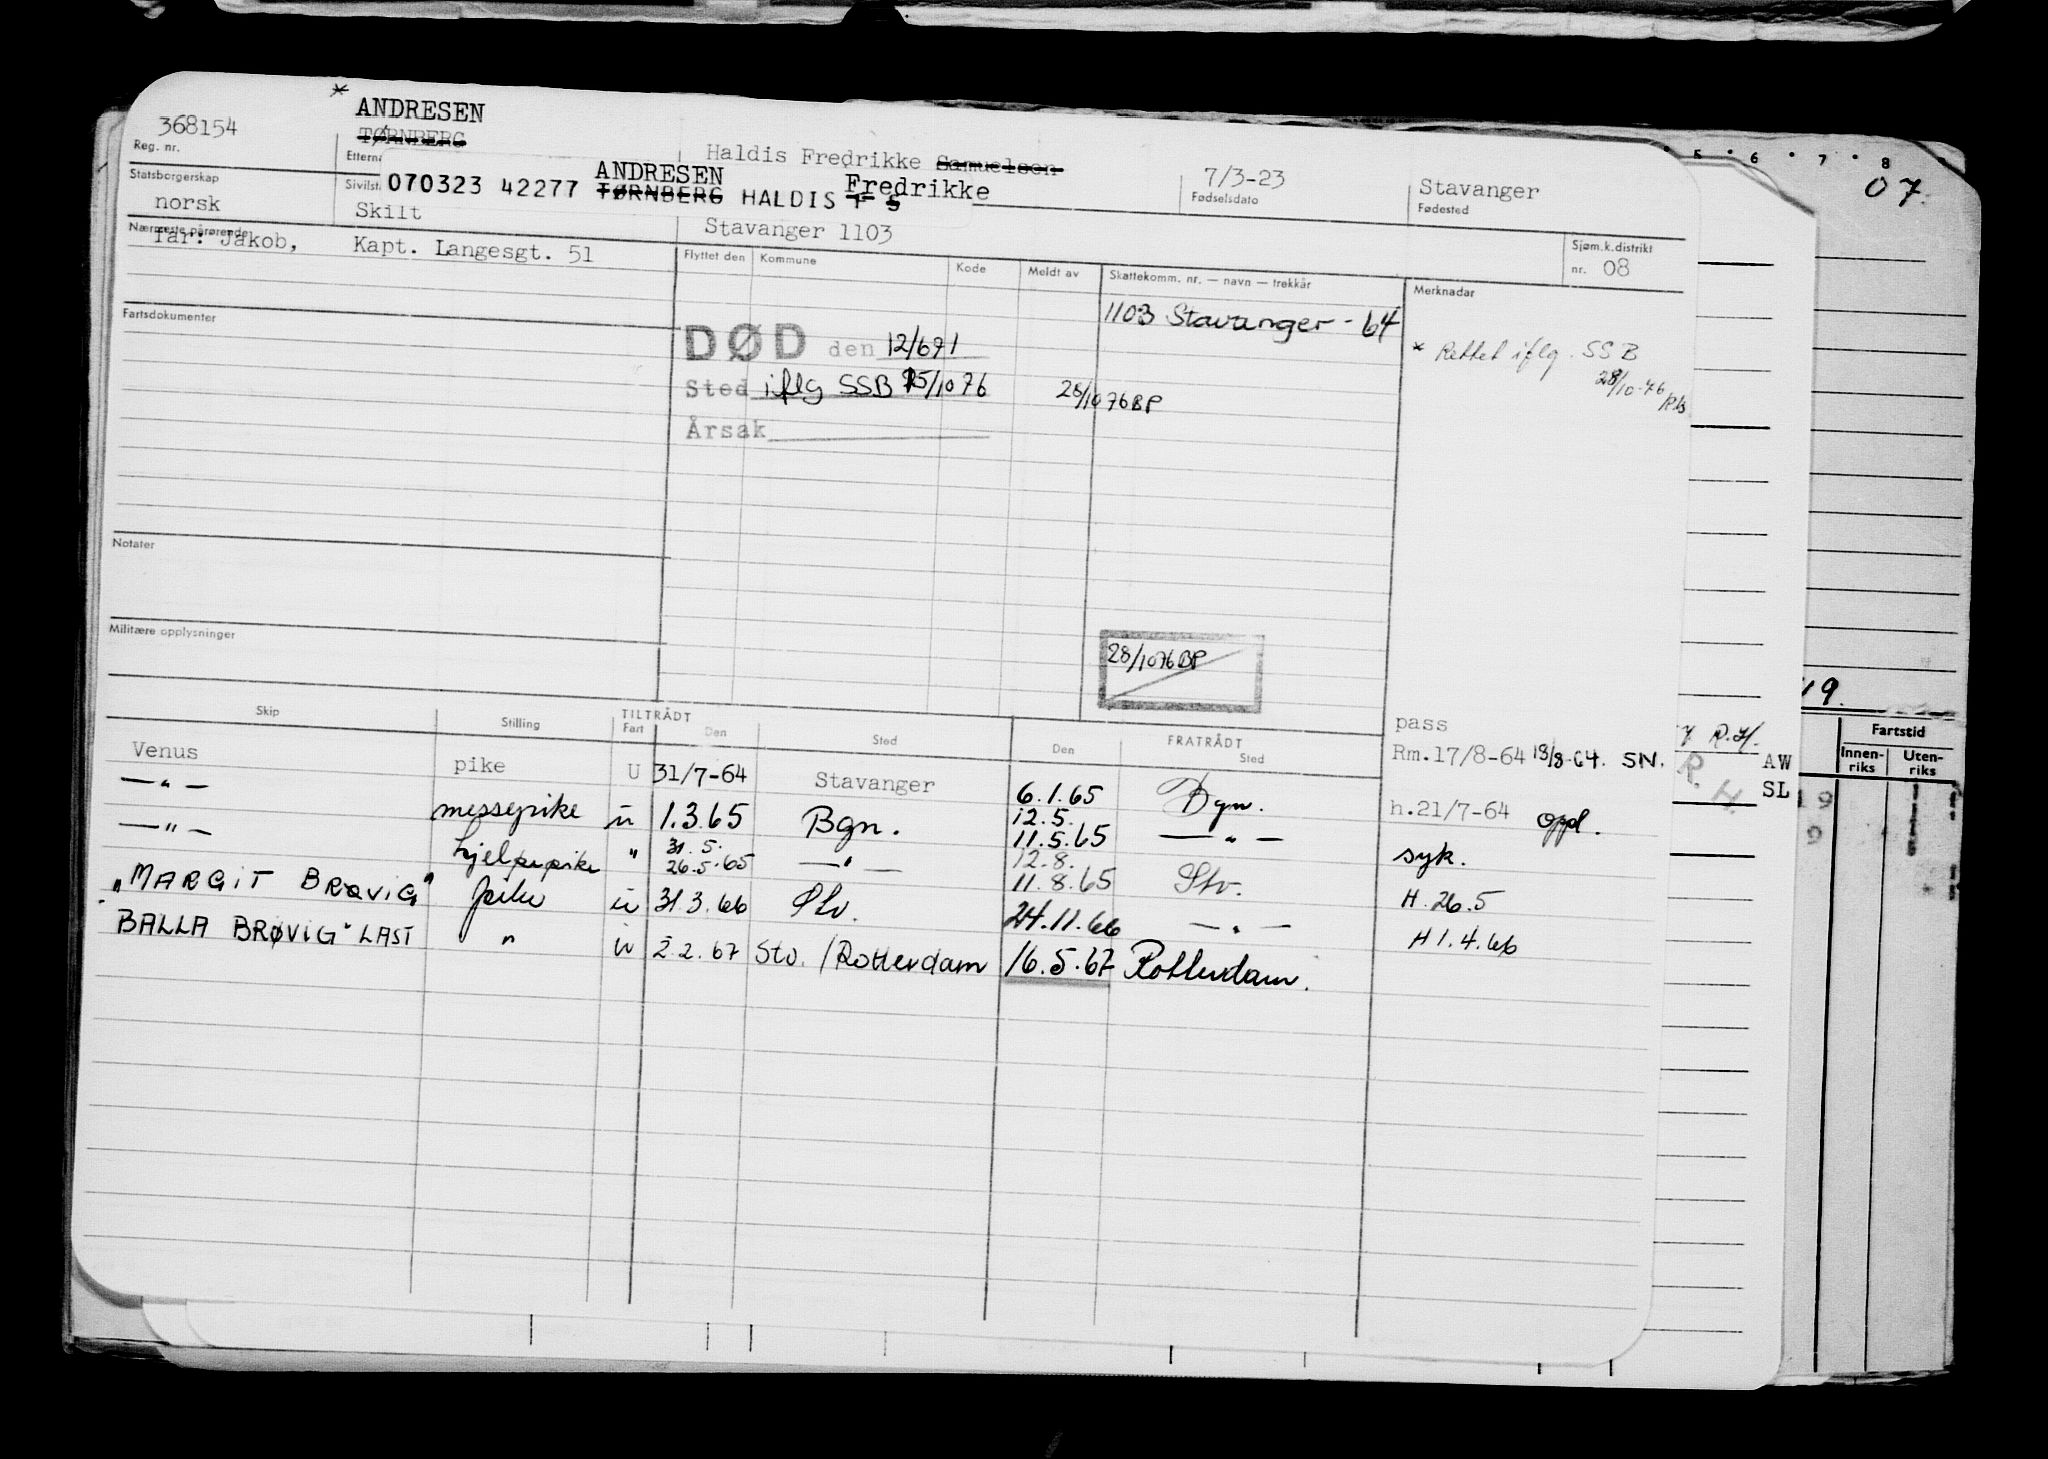 * ANDRESEN
368154 TØRNBERG Haldis Fredrikke Samuelsen 7/3-23 Stavanger
Reg. nr. Fødselsdato Fødested
Statsborgerskap
070323 42277 ANDRESEN TØRNBERG HALDIS F S Fredrikke
norsk Skilt Stavanger 1103
Nærmeste pårørende
far: Jakob, Kapt. Langesgt. 51
Flyttet den Kommune Kode Meldt av Skattekomm. nr. — navn — trekkår Merknadar
Sjøm.k.distrikt
nr. 08
Fartsdokumenter
1103 Stavanger - 64
DØD den 12/6 71
* Rettet iflg. SSB
28/10-76
Sted iflg SSB 15/10 76 28/10 76 BP
Årsak
Notater
Militære opplysninger
28/10 76 BP
Skip Stilling TILTRÅDT FRATRÅDT
Fart Den Sted Den Sted
pass
Venus pike U 31/7-64 Stavanger 6.1.65 Bgn. Rm.17/8-64 18/8-64. SN.
—"— messepike u 1.3.65 Bgn. 12.5. 11.5.65 —"— h.21/7-64 oppl.
—"— hjelpepike " 31.5. 26.5.65 —"— 12.8. 11.8.65 Stv. syk.
"MARGIT BRØVIG" pike u 31.3.66 Stv. 24.11.66 —"— H. 26.5
"BALLA BRØVIG" LAST " u 2.2.67 Stv. / Rotterdam 16.5.67 Rotterdam. H 1.4.66
5 6 7 8
07.
R.H.
AW
SL
Fartstid
Innen-
riks
Uten-
riks